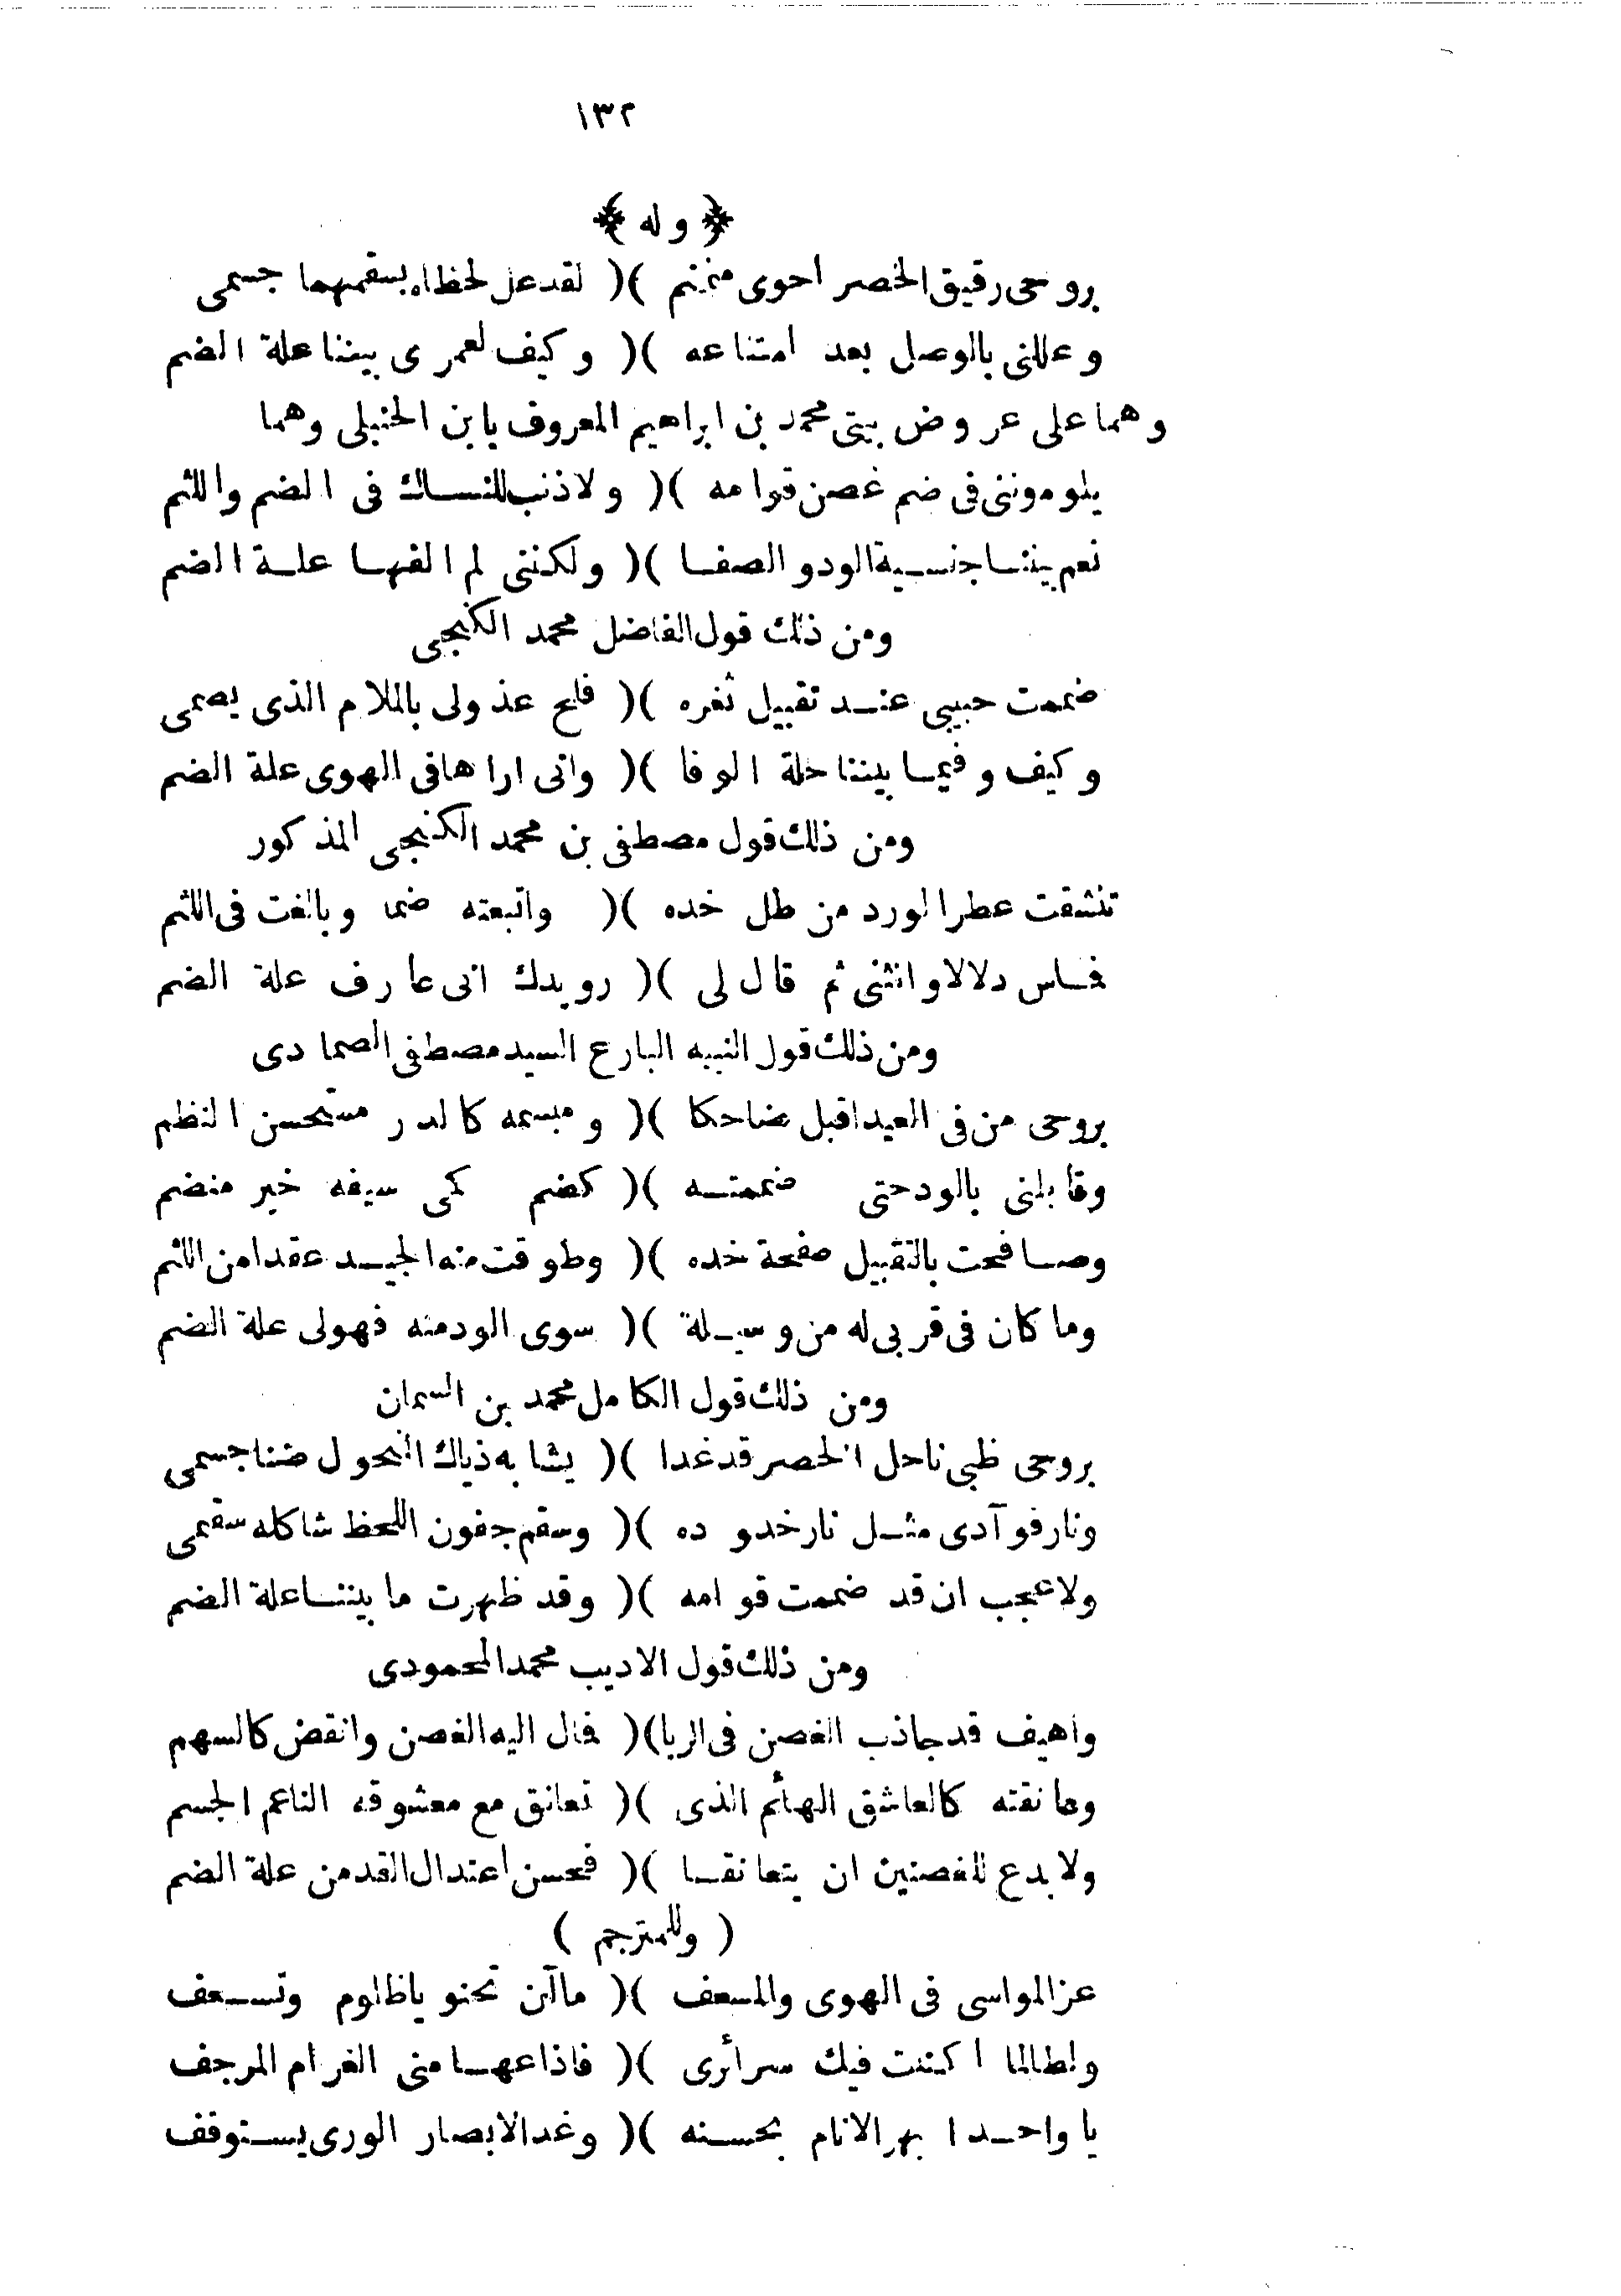 ١٣٢
﴿ وله ﴾
بروحى رقيق الخصر احوى منمنم )( لقد عل لحظاه بسقمهما جسمى
وعللنى بالوصل بعد امتناعه )( وكيف لعمرى بيننا علة الضم
وهما على عروض بيتى محمد بن ابراهيم المعروف بابن الحنبلى وهما
يلومونى فى ضم غصن قوامه )( ولا ذنب للنساك فى الضم واللثم
نعم بيننا جنسية الود والصفا )( ولكننى لم الفها علة الضم
ومن ذلك قول الفاضل محمد الكنجى
ضممت حبيبى عند تقبيل ثغره )( فلج عذولى بالملام الذى يصمى
وكيف وفيما بيننا حلة الوفا )( وانى اراها فى الهوى علة الضم
ومن ذلك قول مصطفى بن محمد الكنجى المذكور
تنشقت عطر الورد من طل خده )( واتبعته ضما وبالغت فى اللثم
فماس دلالا وانثنى ثم قال لى )( رويدك انى عارف علة الضم
ومن ذلك قول النبيه البارع السيد مصطفى الصمادى
بروحى من فى العيد اقبل ضاحكا )( ومبسمه كالدر مستحسن النظم
وقابلنى بالود حتى ضممته )( كضم كمى سيفه خير منضم
وصافحت بالتقبيل صفحة خده )( وطوقت منه الجيد عقدا من اللثم
وما كان فى قربى له من وسيلة )( سوى الود منه فهو لى علة الضم
ومن ذلك قول الكامل محمد بن السمان
بروحى ظبى ناحل الخصر قد غدا )( يشابه ذياك النحول ضنا جسمى
ونار فوآدى مثل نار خدوده )( وسقم جفون اللحظ شاكله سقمى
ولا عجب ان قد ضممت قوامه )( وقد ظهرت ما بيننا علة الضم
ومن ذلك قول الاديب محمد المحمودى
واهيف قد جاذب الغصن فى الربا )( فمال اليه الغصن وانقض كالسهم
وعانقته كالعاشق الهائم الذى )( تعانق مع معشوقه الناعم الجسم
ولا بدع للغصنين ان يتعانقا )( فحسن اعتدال القد من علة الضم
( وللمترجم )
عز المواسى فى الهوى والمسعف )( ماآن تحنو ياظلوم وتسعف
ولطالما اكننت فيك سرائرى )( فاذاعها منى الغرام المرجف
يا واحدا بهر الانام بحسنه )( وغدا لابصار الورى يستوقف